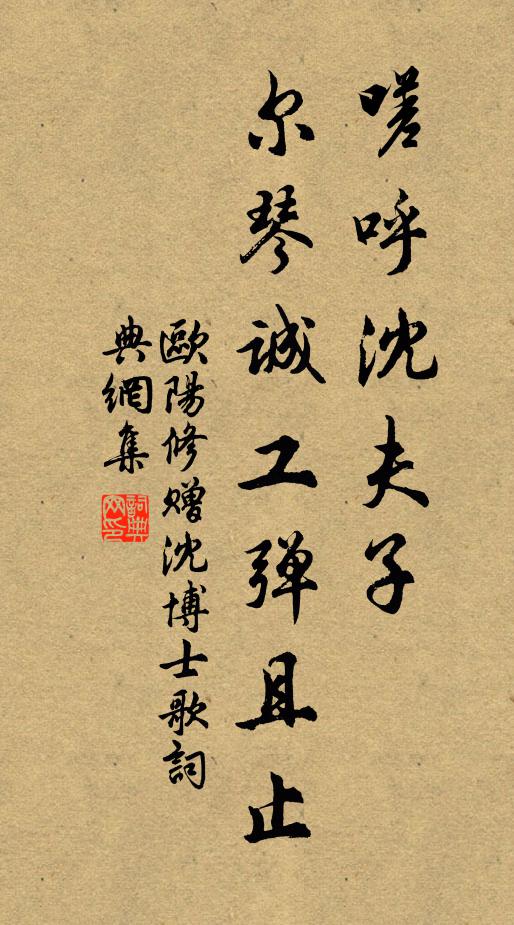 嗟呼沈夫子
尔琴诚工弹且止
歐陽修贈沈博士歌詞
典網集
詞典
网印